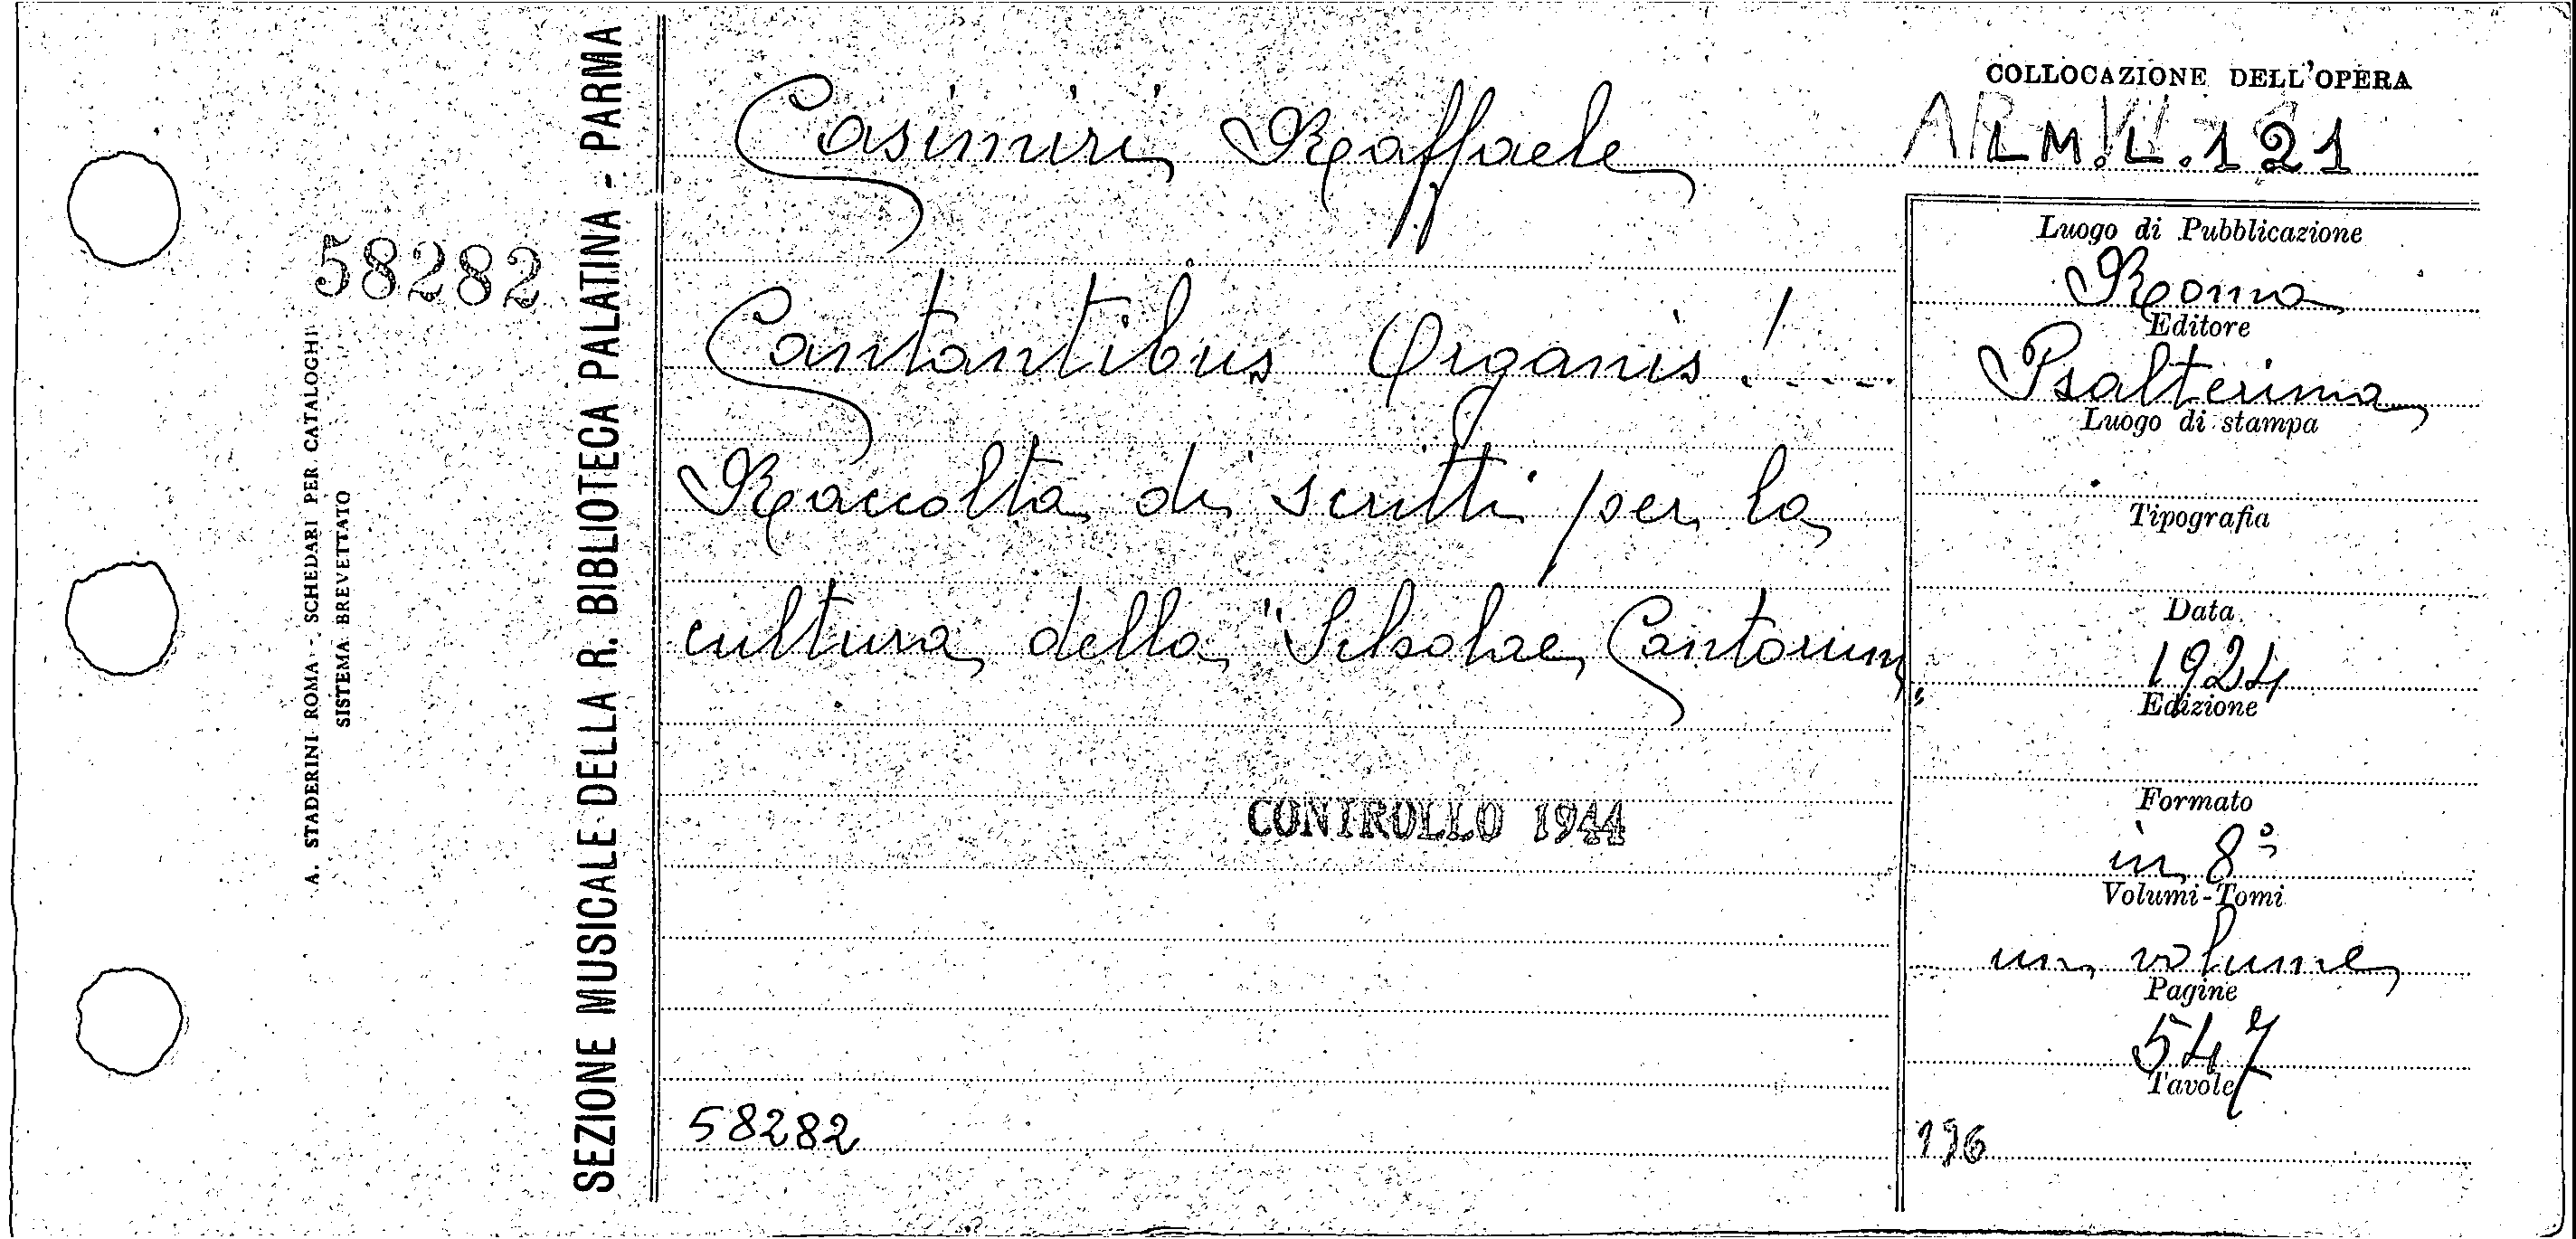 58282
A. STADERINI ROMA - SCHEDARI PER CATALOGHI
SISTEMA BREVETTATO
SEZIONE MUSICALE DELLA R. BIBLIOTECA PALATINA - PARMA
Casimiri Raffaele
Cantantibus Organis!.....
Raccolta di scritti per la
cultura della "Scholae Cantorum"
CONTROLLO 1944
58282
COLLOCAZIONE DELL'OPERA
L M.L.121
Luogo di Pubblicazione
Roma
Editore
Psalterium
Luogo di stampa
Tipografia
Data
1924
Edizione
Formato
in 8°
Volumi-Tomi
un volume
Pagine
547
Tavole